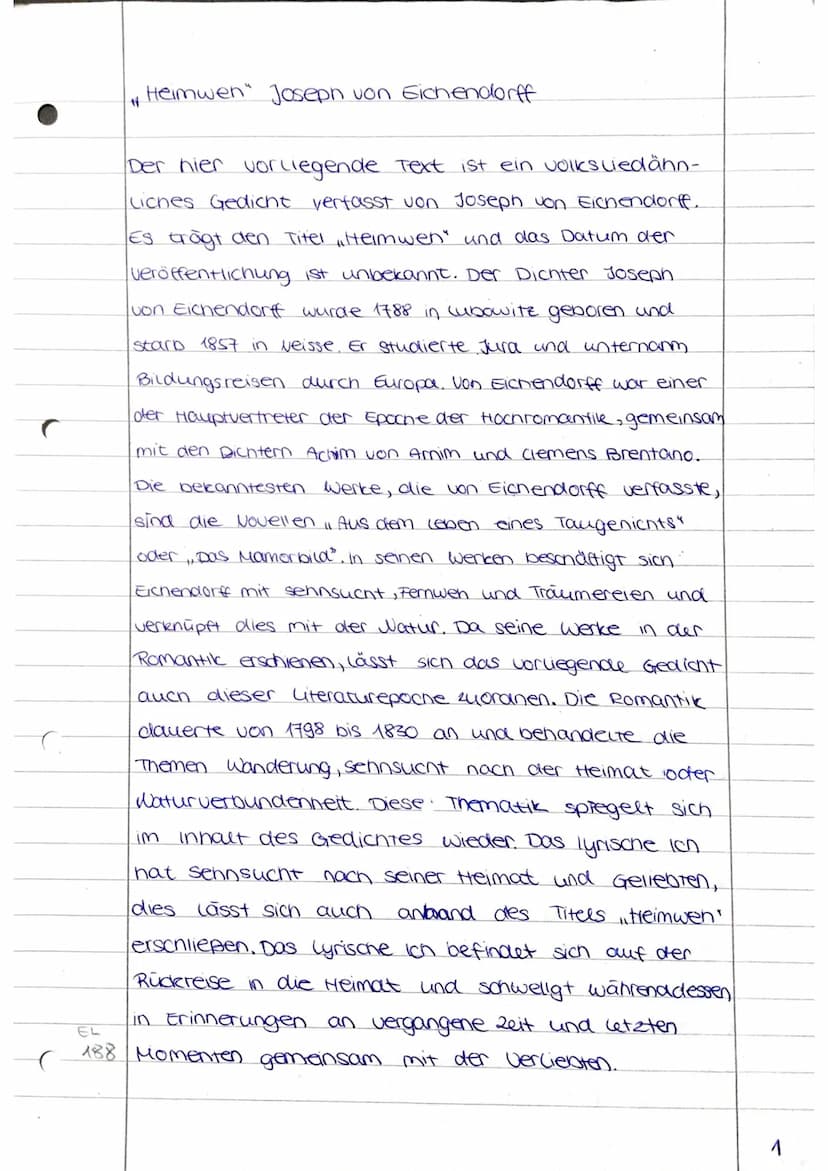 „Heimweh" Joseph von Eichendorff
Der hier vorliegende Text ist ein volksliedähn-
liches Gedicht verfasst von Joseph von Eichendorff.
Es trägt den Titel „Heimweh" und das Datum der
Veröffentlichung ist unbekannt. Der Dichter Joseph
von Eichendorff wurde 1788 in Lubowitz geboren und
starb 1857 in Neisse. Er studierte Jura und unternahm
Bildungsreisen durch Europa. Von Eichendorff war einer
der Hauptvertreter der Epoche der Hochromantik, gemeinsam
mit den Dichtern Achim von Arnim und Clemens Brentano.
Die bekanntesten Werke, die von Eichendorff verfasste,
sind die Novellen „Aus dem Leben eines Taugenichts"
oder „Das Mamorbild". In seinen Werken beschäftigt sich
Eichendorff mit Sehnsucht, Fernweh und Träumereien und
verknüpft dies mit der Natur. Da seine Werke in der
Romantik erschienen, lässt sich das vorliegende Gedicht
auch dieser Literaturepoche zuordnen. Die Romantik
dauerte von 1798 bis 1830 an und behandelte die
Themen Wanderung, Sehnsucht nach der Heimat oder
Naturverbundenheit. Diese Thematik spiegelt sich
im Inhalt des Gedichtes wieder. Das lyrische Ich
hat Sehnsucht nach seiner Heimat und Geliebten,
dies lässt sich auch anhand des Titels „Heimweh"
erschließen. Das lyrische Ich befindet sich auf der
Rückreise in die Heimat und schwelgt währenddessen
in Erinnerungen an vergangene Zeit und letzten
EL
188 Momenten gemeinsam mit der Verliebten.
1